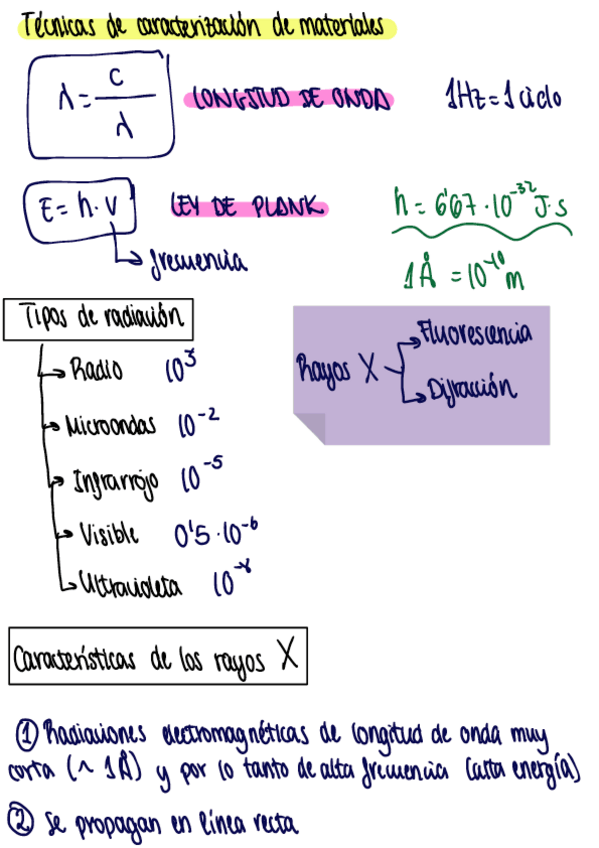 Técnicas de caracterización de materiales
λ = c / λ
LONGITUD DE ONDA
1Hz = 1 ciclo
E = h · ν
LEY DE PLANK
frecuencia
h = 6'67 · 10⁻³² J·s
1 Å = 10⁻¹⁰ m
Tipos de radiación
Radio 10³
Microondas 10⁻²
Infrarrojo 10⁻⁵
Visible 0'5 · 10⁻⁶
Ultravioleta 10⁻⁸
Rayos X
Fluorescencia
Difracción
Características de los rayos X
① Radiaciones electromagnéticas de longitud de onda muy
corta (~ 1Å) y por lo tanto de alta frecuencia (alta energía)
② Se propagan en línea recta